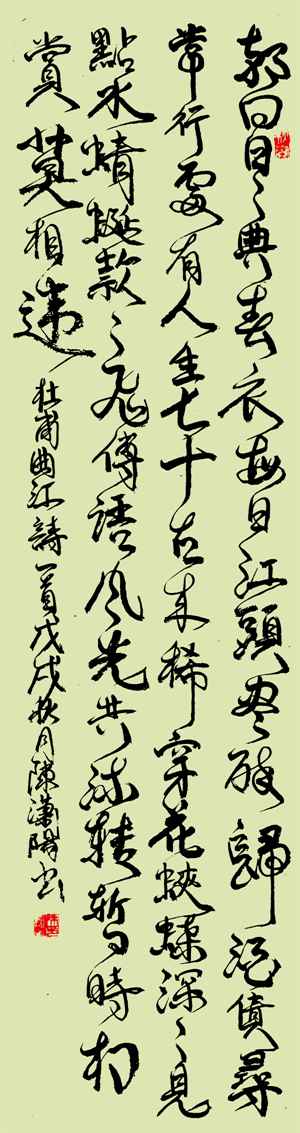 朝回日々典春衣每日江頭盡醉歸酒債尋
常行處有人生七十古來稀穿花蛺蝶深々見
點水蜻蜓款々飛傳語風光共流轉暫時相
賞莫相違
杜甫曲江詩一首戊戌秋月陳瀟陽書